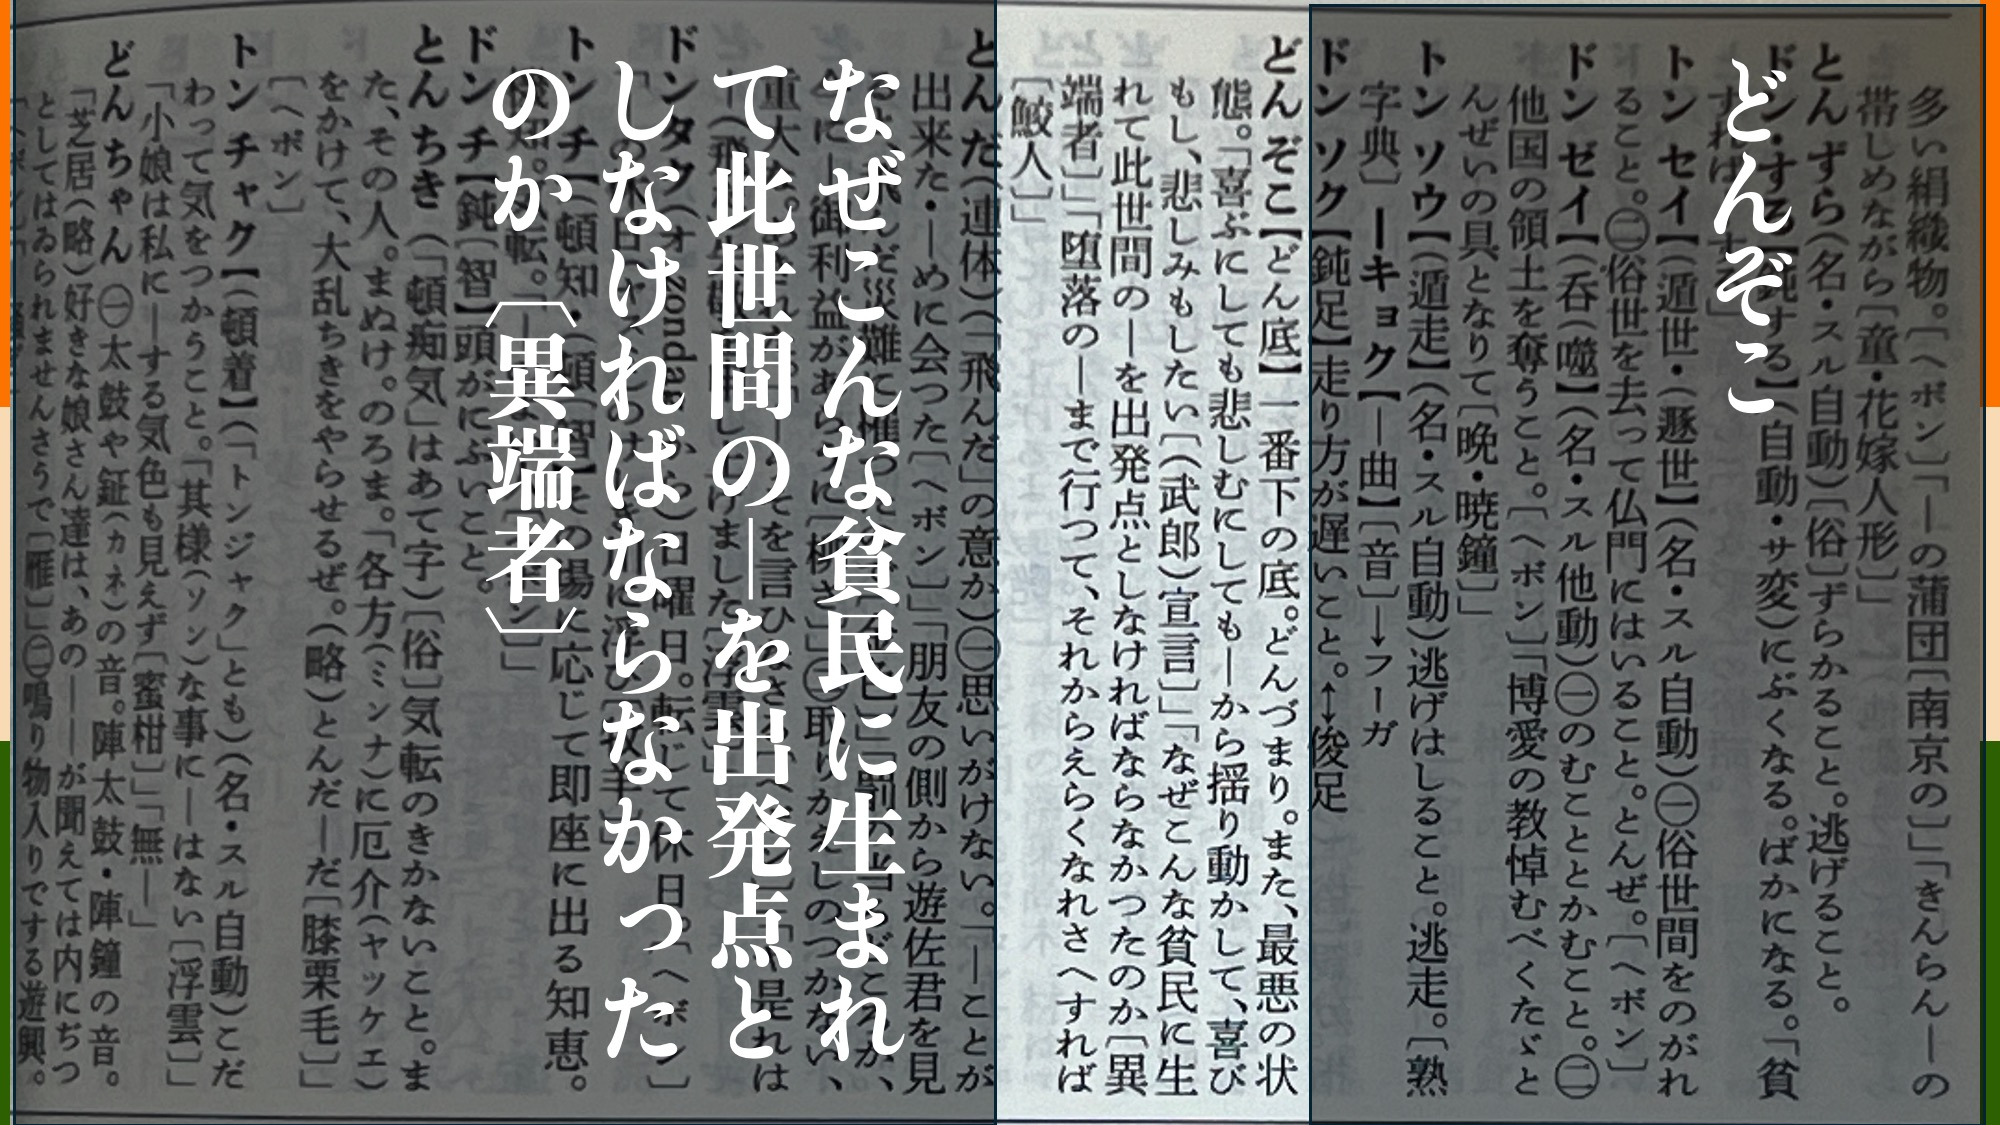 どんぞこ
なぜこんな貧民に生まれ
て此世間の―を出発点と
しなければならなかった
のか〔異端者〕
多い絹織物。〔ヘボン〕「―の蒲団〔南京の〕」「きんらん―の
帯しめながら〔童・花嫁人形〕」
とんずら(名・スル自動)〔俗〕ずらかること。逃げること。
トン セイ【(遁世・(遯世】(名・スル自動)㊀俗世間をのがれ
ること。㊁俗世を去って仏門にはいること。とんぜ。〔ヘボン〕
ドン ゼイ【(呑(噬】(名・スル他動)㊀のむこととかむこと。㊁
他国の領土を奪うこと。〔ヘボン〕「博愛の教悼むべくたゞと
んぜいの具となりて〔晩・暁鐘〕」
トン ソウ【(遁走】(名・スル自動)逃げはしること。逃走。〔熟
字典〕 ―キョク【―曲】〔音〕→フーガ
ドン ソク【鈍足】走り方が遅いこと。↔俊足
どん ぞこ【どん底】一番下の底。どんづまり。また、最悪の状
態。「喜ぶにしても悲しむにしても―から揺り動かして、喜び
もし、悲しみもしたい〔(武郎)宣言〕」「なぜこんな貧民に生
れて此世間の―を出発点としなければならなかつたのか〔異
端者〕」「堕落の―まで行つて、それからえらくなれさへすれば
〔鮫人〕」
とんちき (「頓痴気」はあて字)〔俗〕気転のきかないこと。ま
た、その人。まぬけ。のろま。「各方(ミンナ)に厄介(ヤッケェ)
をかけて、大乱ちきをやらせるぜ。(略)とんだ―だ〔膝栗毛〕」
〔ヘボン〕
トン チャク【(頓着】(「トンジャク」とも)(名・スル自動)こだ
わって気をつかうこと。「其様(ソン)な事に―はない〔浮雲〕」
「小娘は私に―する気色も見えず〔蜜柑〕」「無―」
どん ちゃん ㊀太鼓や鉦(カネ)の音。陣太鼓・陣鐘の音。
「芝居(略)好きな娘さん達は、あの――が聞えては内にぢつ
としてはゐられませんさうで〔雁〕」㊁鳴り物入りでする遊興。